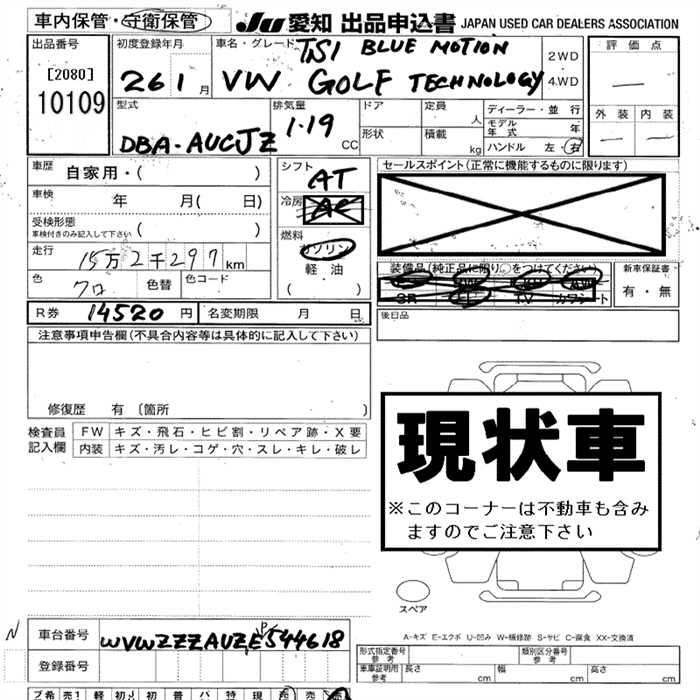 車内保管・守衛保管 JU 愛知 出品申込書 JAPAN USED CAR DEALERS ASSOCIATION
出品番号 初度登録年月 車名・グレード TSI BLUE MOTION 2WD 評価点
[2080] 26 1月 VW GOLF TECHNOLOGY 4WD —
10109 型式 排気量 ドア 定員 人 ディーラー・並行 外装 内装
DBA-AUCJZ 1.19 CC 形状 積載 kg モデル年式 年 — —
ハンドル 左・右
車歴 自家用・( ) シフト AT セールスポイント(正常に機能するものに限ります)
車検 年 月( 日) 冷房 AC
受検形態 ・( )
車検付きのみ記入して下さい
燃料 ガソリン
走行 15万2千297km 軽油 装備品(純正品に限り○をつけてください) 新車保証書
色 クロ 色替 色コード ( ) SR TV カワシート 有・無
R券 14520円 名変期限 月 日 後日品
注意事項申告欄(不具合内容等は具体的に記入して下さい)
現状車
修復歴 有〔箇所 )
検査員 FW キズ・飛石・ヒビ割・リペア跡・X要
記入欄 内装 キズ・汚レ・コゲ・穴・スレ・キレ・破レ
※このコーナーは不動車も含み
ますのでご注意下さい
スペア
A-キズ E-エクボ U-凹み W-補修跡 S-サビ C-腐食 XX-交換済
N 車台番号 WVWZZZAUZEP544618
形式指定番号 参考 類別区分番号 参考
登録番号 車庫証明用 参考 長さ cm 幅 cm 高さ cm